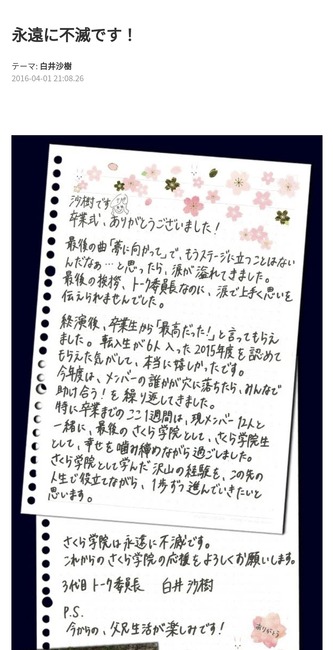 永遠に不滅です！
テーマ: 白井沙樹
2016-04-01 21:08.26
沙樹です
卒業式、ありがとうございました！
最後の曲「夢に向かって」で、もうステージに立つことはない
んだなぁ…と思ったら、涙が溢れてきました。
最後の挨拶、トーク委員長なのに、涙で上手く思いを
伝えられませんでした。
終演後、卒業生から「最高だった！」と言ってもらえ
ました。転入生が6人入った2015年度を認めて
もらえた気がして、本当に嬉しかったです。
今年度は、メンバーの誰かが穴に落ちたら、みんなで
助け合う！を繰り返してきました。
特に卒業までのここ1週間は、現メンバー12人と
一緒に、最後のさくら学院として、さくら学院生
として、幸せを噛み締めながら過ごしました。
さくら学院として学んだ沢山の経験を、この先の
人生で役立てながら、1歩ずつ進んでいきたいと
思います。
さくら学院は永遠に不滅です。
これからのさくら学院の応援をよろしくお願いします。
3代目トーク委員長 白井沙樹
P.S.
今からの、父兄生活が楽しみです！
ありがとう